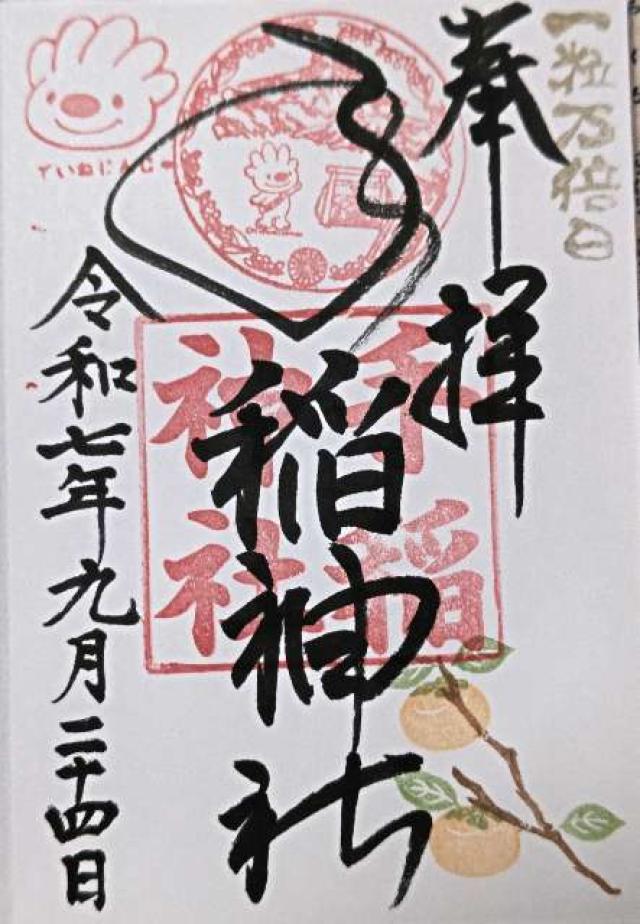 一粒万倍日
奉拝
手稲神社
手稲
神社
ていねにんじゃー
令和七年九月二十四日